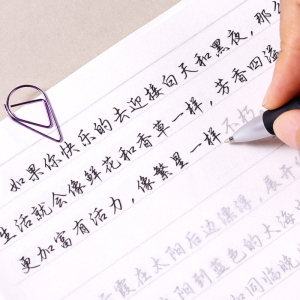 如果你快乐的去迎接白天和黑夜，那么
生活就会像鲜花和香草一样，芳香四溢
更加富有活力，像繁星一样不朽
彩霞在太阳后边漂荡，展开
太阳到蓝色的大海
如同临晚